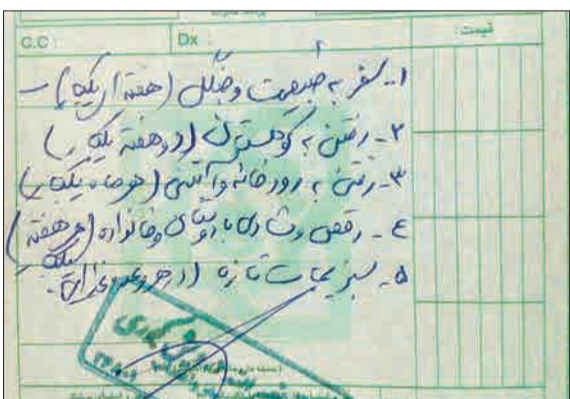 قیمت:
C.C:
Dx:
۱- سفر به طبیعت و جنگل (هفته‌ای یکبار)
۲- رفتن به کوهستان (دو هفته یکبار)
۳- رفتن به رودخانه و آتنی (هر ماه یکبار)
٤- رقص و شادی با دوستان و خانواده (هر هفته یکبار)
۵- سبزیجات تازه (در هر وعده غذایی)